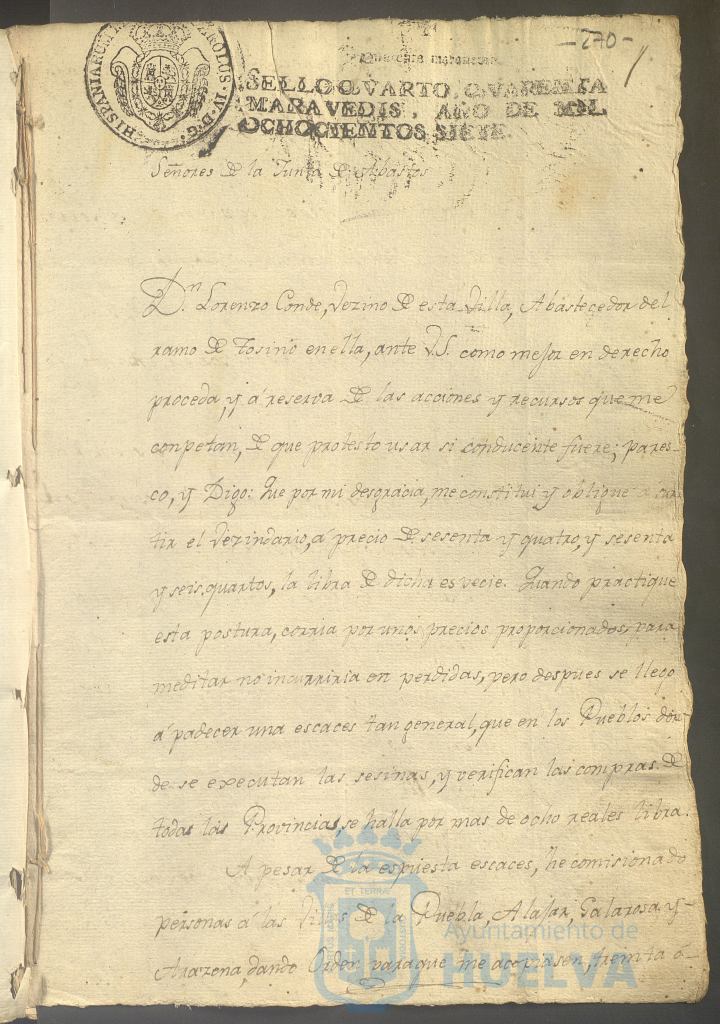 -270-
HISPANIARUM
CAROLUS · IV · D · G ·
Quarenta maravedis.
SELLO QVARTO, QVARENTA
MARAVEDIS, AÑO DE MIL
OCHOCIENTOS SIETE.
Señores de la Junta de Abastos
D.n Lorenzo Conde, Vezino de esta Villa, Abastecedor del
ramo de Tosino en ella, ante V.S. como mejor en derecho
proceda, y á reserva de las acciones y recursos que me
conpetan, de que protesto usar si conducente fuere; pares-
co, y Digo: Que por mi desgracia, me constitui y obligue a sur
tir el Vezindario, á precio de sesenta y quatro, y sesenta
y seis quartos, la libra de dicha especie. Quando practique
esta postura, corria por unos precios proporcionados, para
meditar no incurriria en perdidas, pero despues se llego
á padecer una escaces tan general, que en los Pueblos don-
de se executan las sesinas, y verifican las compras de
todas las Provincias, se halla por mas de ocho reales libra.
A pesar de la espuesta escaces, he comisionado
personas á las Villas de la Puebla, Alajar, Galarosa y
Arazena, dando Orden para que me acopiasen, treinta ó
ET TERRA
Ayuntamiento de
HUELVA